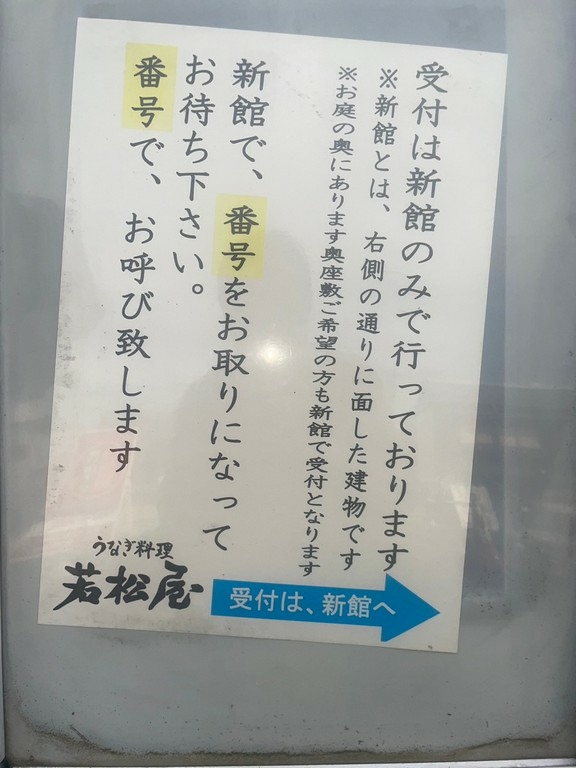 受付は新館のみで行っております
※新館とは、右側の通りに面した建物です
※お庭の奥にあります奥座敷ご希望の方も新館で受付となります
新館で、番号をお取りになって
お待ち下さい。
番号で、お呼び致します
うなぎ料理
若松屋
受付は、新館へ